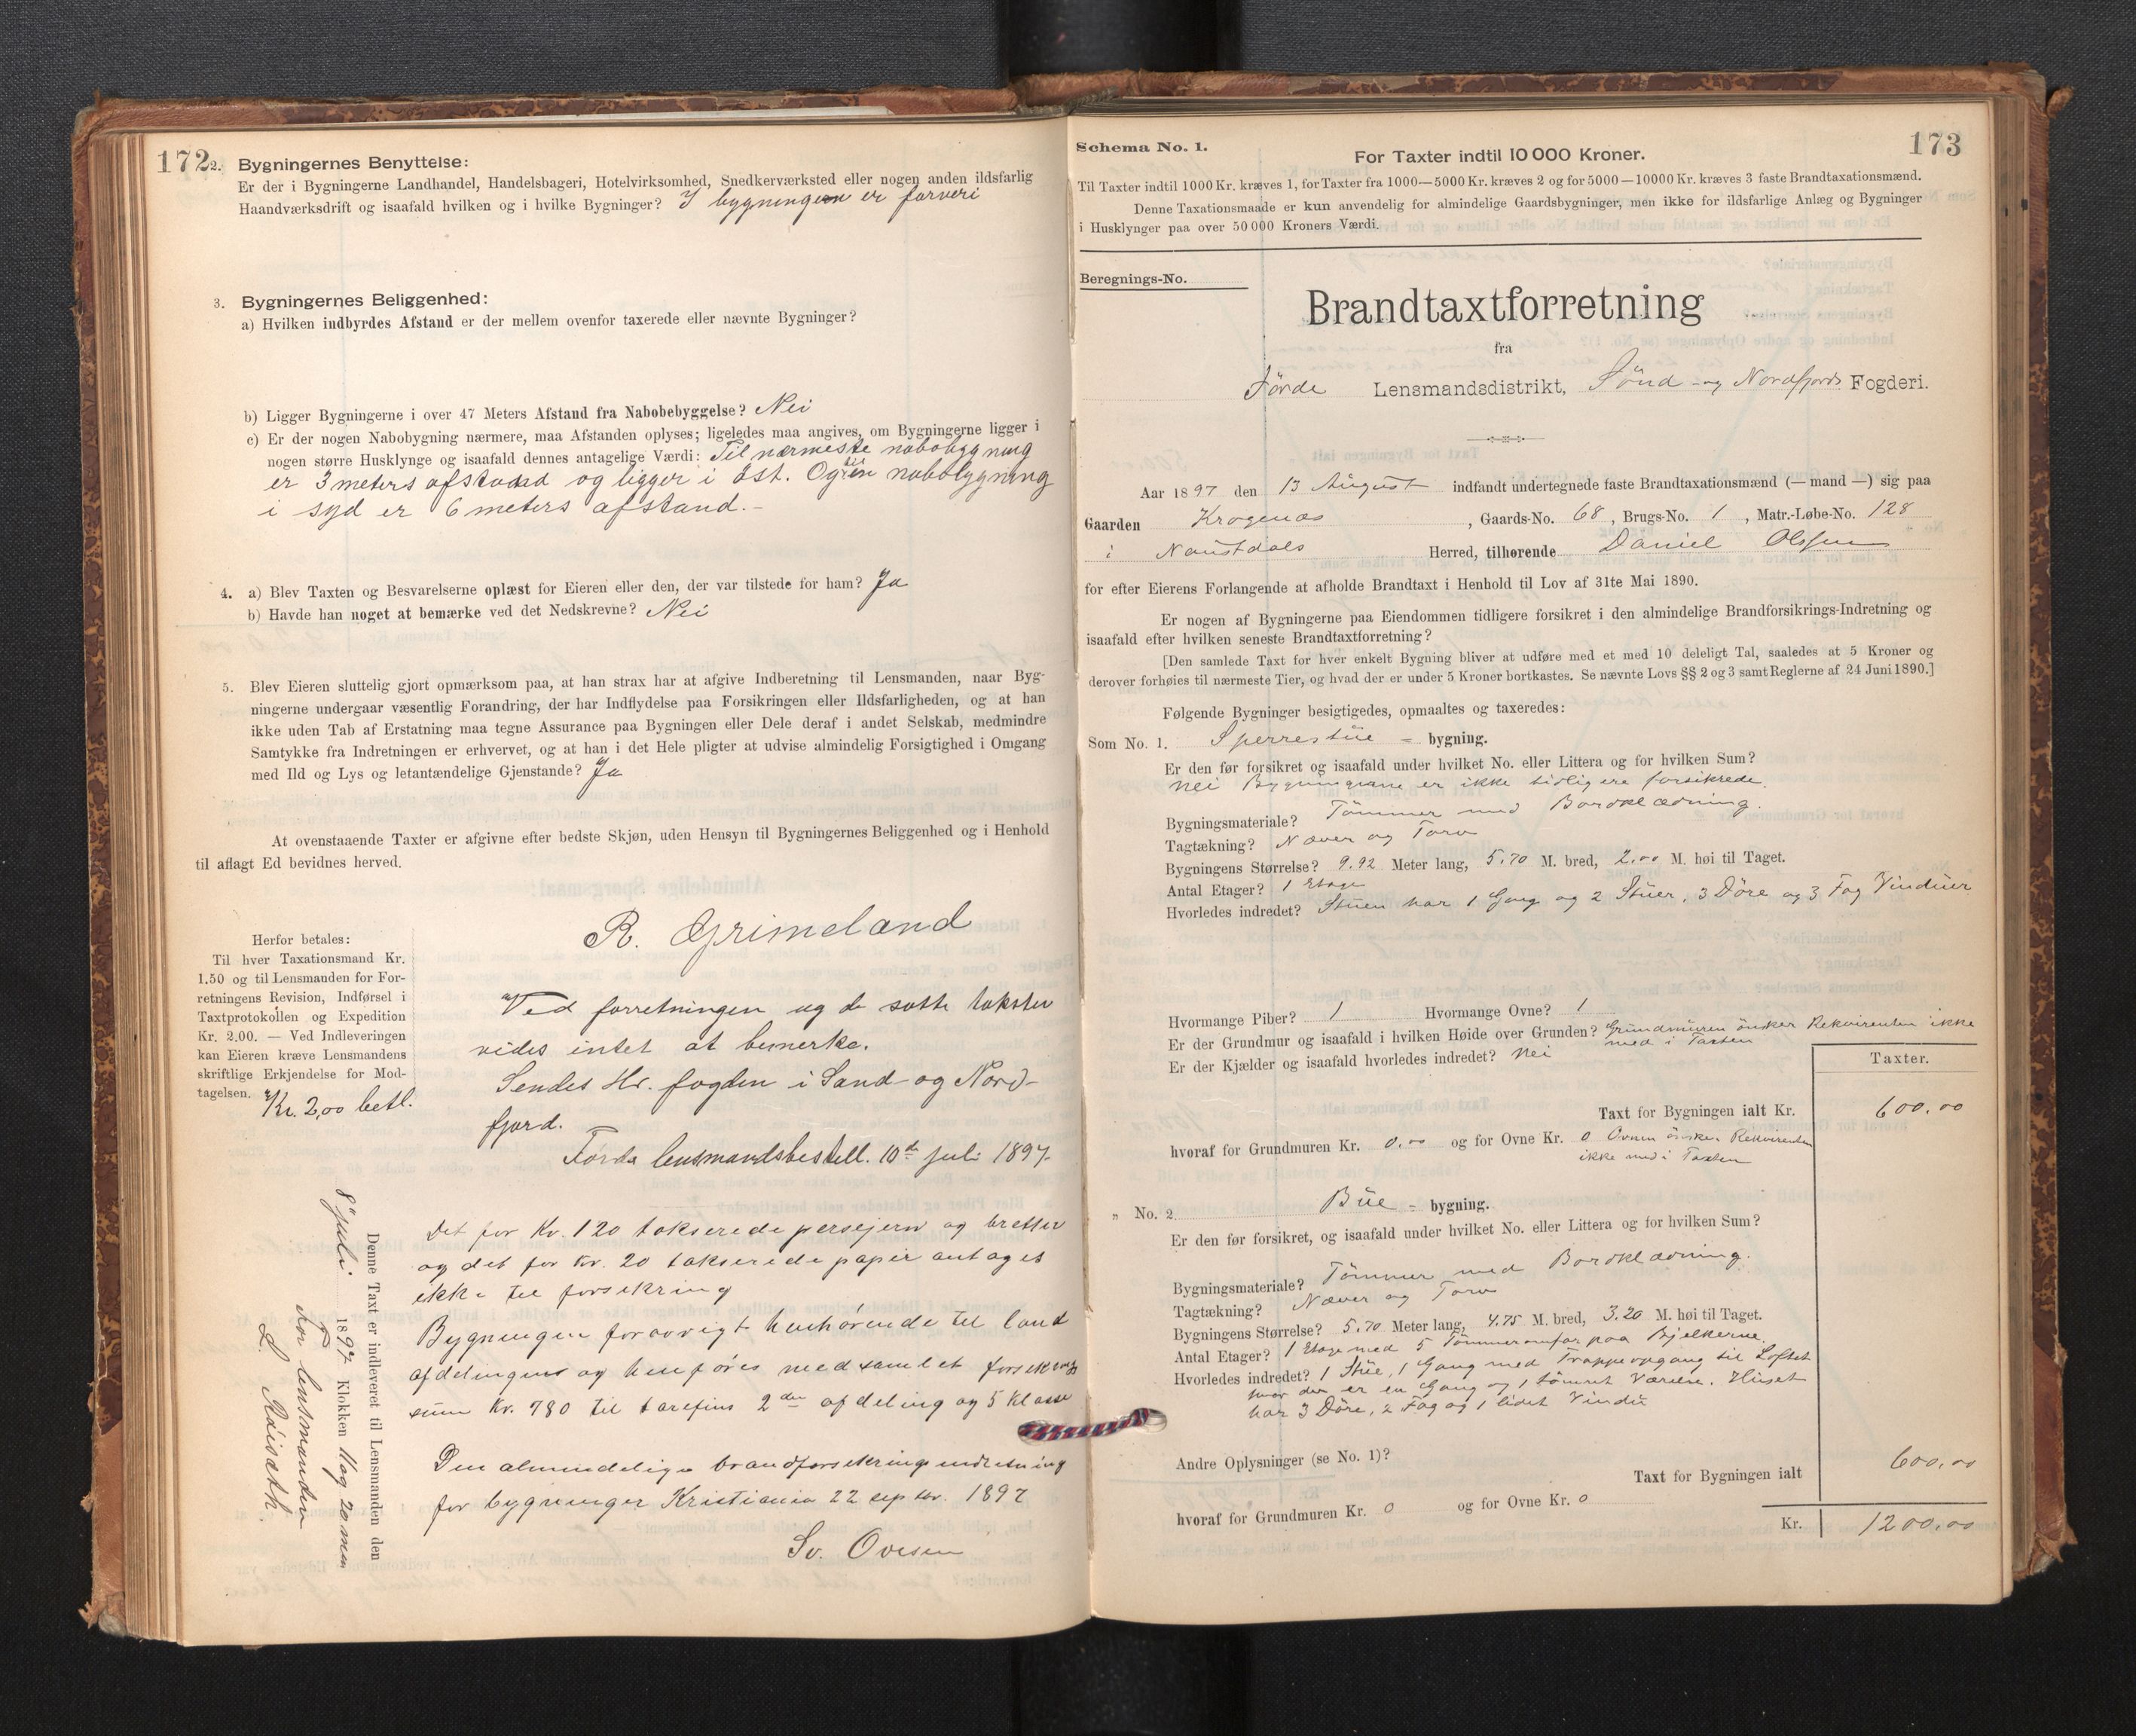 172
2. Bygningernes Benyttelse:
Er der i Bygningerne Landhandel, Handelsbageri, Hotelvirksomhed, Snedkerværksted eller nogen anden ildsfarlig
Haandværksdrift og isaafald hvilken og i hvilke Bygninger? I bygningen er farveri
3. Bygningernes Beliggenhed:
a) Hvilken indbyrdes Afstand er der mellem ovenfor taxerede eller nævnte Bygninger?
b) Ligger Bygningerne i over 47 Meters Afstand fra Nabobebyggelse? Nei
c) Er der nogen Nabobygning nærmere, maa Afstanden oplyses; ligeledes maa angives, om Bygningerne ligger i
nogen større Husklynge og isaafald dennes antagelige Værdi: Til nærmeste nabobygning
er 3 meters afstand og ligger i øst. Og til en nabobygning
i syd er 6 meters afstand.-
4. a) Blev Taxten og Besvarelserne oplæst for Eieren eller den, der var tilstede for ham? Ja
b) Havde han noget at bemærke ved det Nedskrevne? Nei
5. Blev Eieren sluttelig gjort opmærksom paa, at han strax har at afgive Indberetning til Lensmanden, naar Byg-
ningerne undergaar væsentlig Forandring, der har Indflydelse paa Forsikringen eller Ildsfarligheden, og at han
ikke uden Tab af Erstatning maa tegne Assurance paa Bygningen eller Dele deraf i andet Selskab, medmindre
Samtykke fra Indretningen er erhvervet, og at han i det Hele pligter at udvise almindelig Forsigtighed i Omgang
med Ild og Lys og letantændelige Gjenstande? Ja
At ovenstaaende Taxter er afgivne efter bedste Skjøn, uden Hensyn til Bygningernes Beliggenhed og i Henhold
til aflagt Ed bevidnes herved.
R. Grimeland
Herfor betales:
Til hver Taxationsmand Kr.
1.50 og til Lensmanden for For-
retningens Revision, Indførsel i
Taxtprotokollen og Expedition
Kr. 2.00. — Ved Indleveringen
kan Eieren kræve Lensmandens
skriftlige Erkjendelse for Mod-
tagelsen. Kr. 2,00 betl.
Ved forretningen og de satte takster
vides intet at bemerke.
Sendes Hr. fogden i Sønd- og Nord-
fjord.
Førde lensmandsbestell. 10de juli 1897.
Denne Taxt er indleveret til Lensmanden den
8 juli 1897 Klokken 11 og 20 min
For lensmanden
L. Räisæth.
Det for Kr. 120 takserede persejern og bretter
og det for Kr. 20 takserede papir antages
ikke til forsikring
Bygningen forøvrigt henhørende til land
afdelingen og henføres med samlet forsikrings
sum Kr. 780 til tarefens 2den afdeling og 5 klasse
Den almindelige brandforsikringsindretning
for bygninger Kristiania 22 septbr. 1897
Sv. Ovesen
173
Schema No. 1.
For Taxter indtil 10 000 Kroner.
Til Taxter indtil 1000 Kr. kræves 1, for Taxter fra 1000—5000 Kr. kræves 2 og for 5000—10000 Kr. kræves 3 faste Brandtaxationsmænd.
Denne Taxationsmaade er kun anvendelig for almindelige Gaardsbygninger, men ikke for ildsfarlige Anlæg og Bygninger
i Husklynger paa over 50 000 Kroners Værdi.
Beregnings-No.
Brandtaxtforretning
fra
Förde Lensmandsdistrikt, Sönd- og Nordfjords Fogderi.
Aar 1897 den 13 August indfandt undertegnede faste Brandtaxationsmænd (—mand—) sig paa
Gaarden Krogenæs, Gaards-No. 68, Brugs-No. 1, Matr.-Løbe-No. 128
i Naustdals Herred, tilhørende Daniel Olssen
for efter Eierens Forlangende at afholde Brandtaxt i Henhold til Lov af 31te Mai 1890.
Er nogen af Bygningerne paa Eiendommen tidligere forsikret i den almindelige Brandforsikrings-Indretning og
isaafald efter hvilken seneste Brandtaxtforretning?
[Den samlede Taxt for hver enkelt Bygning bliver at udføre med et med 10 deleligt Tal, saaledes at 5 Kroner og
derover forhøies til nærmeste Tier, og hvad der er under 5 Kroner bortkastes. Se nævnte Lovs §§ 2 og 3 samt Reglerne af 24 Juni 1890.]
Følgende Bygninger besigtigedes, opmaaltes og taxeredes:
Som No. 1. Sperrestüe - bygning.
Er den før forsikret og isaafald under hvilket No. eller Littera og for hvilken Sum?
Nei Bygningerne er ikke tidligere forsikrede.
Bygningsmateriale? Tömmer med Bordklædning.
Tagtækning? Næver og Torv
Bygningens Størrelse? 9.92 Meter lang, 5.70 M. bred, 2.00 M. høi til Taget.
Antal Etager? 1 Etage
Hvorledes indredet? Stüen har 1 Gang og 2 Stüer, 3 Döre og 3 Fag Vindüer
Hvormange Piber? 1 Hvormange Ovne? 1
Er der Grundmur og isaafald i hvilken Høide over Grunden? Grundmüren önsker Rekvirenten ikke
med i Taxten
Er der Kjælder og isaafald hvorledes indredet? Nei
Taxter.
Taxt for Bygningen ialt Kr. 600.00
hvoraf for Grundmuren Kr. 0.00 og for Ovne Kr. 0 Ovnen önsker Rekvirenten
ikke med i Taxten
„ No. 2 Büe - bygning.
Er den før forsikret, og isaafald under hvilket No. eller Littera og for hvilken Sum?
Bygningsmateriale? Tömmer med Bordklædning.
Tagtækning? Næver og Torv
Bygningens Størrelse? 5.70 Meter lang, 4.75 M. bred, 3.20 M. høi til Taget.
Antal Etager? 1 Etage med 5 Tömmeromfar paa Bjelkerne.
Hvorledes indredet? 1 Stüe, 1 Gang med Trappeopgang til Loftet
hvor der er en Gang og 1 tömret Værelse. Hüset
har 3 Döre, 2 Fag og 1 lidet Vindü
Andre Oplysninger (se No. 1)?
Taxt for Bygningen ialt 600.00
hvoraf for Grundmuren Kr. 0 og for Ovne Kr. 0
Kr. 1200.00